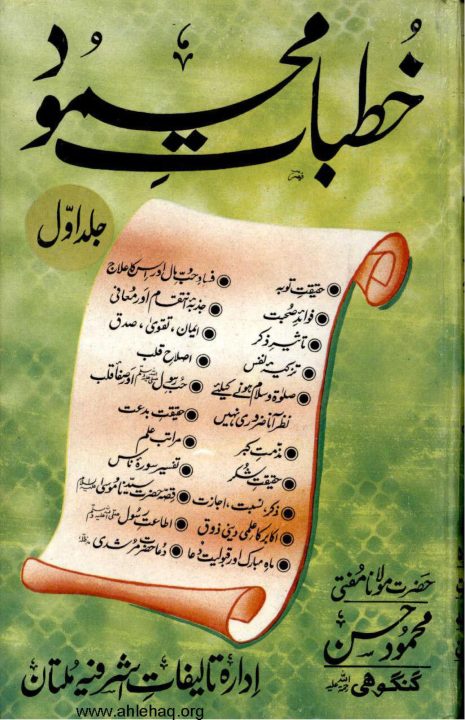 خطباتِ محمود
جلد اوّل
حقیقتِ توبہ
فوائدِ صحبت
تاثیرِ ذکر
تزکیۂ نفس
صلوٰۃ و سلام ہونے کیلئے
نظر آنا ضروری نہیں
مذمتِ کبر
حقیقتِ شکر
ذکر، نسبت، اجازت
اکابر کا علمی دینی ذوق
ماہِ مبارک اور قبولیتِ دُعا
فساد حُبِّ مال اور اس کا علاج
جذبۂ انتقام اور معافی
ایمان، تقویٰ، صدق
اصلاحِ قلب
حُبِّ رسول ﷺ اور صفأ قلب
حقیقتِ بدعت
مراتبِ علم
تفسیر سورۂ ناس
قصۂ حضرت سیّدنا موسیٰ علیہ السلام
اطاعتِ رسُول صلی اللہ علیہ وسلم
دُعا حضرت مرشدی
حضرت مولانا مفتی
محمود حسن
گنگوہی رحمۃ اللہ علیہ
ادارۂ تالیفاتِ اشرفیہ ملتان
www.ahlehaq.org